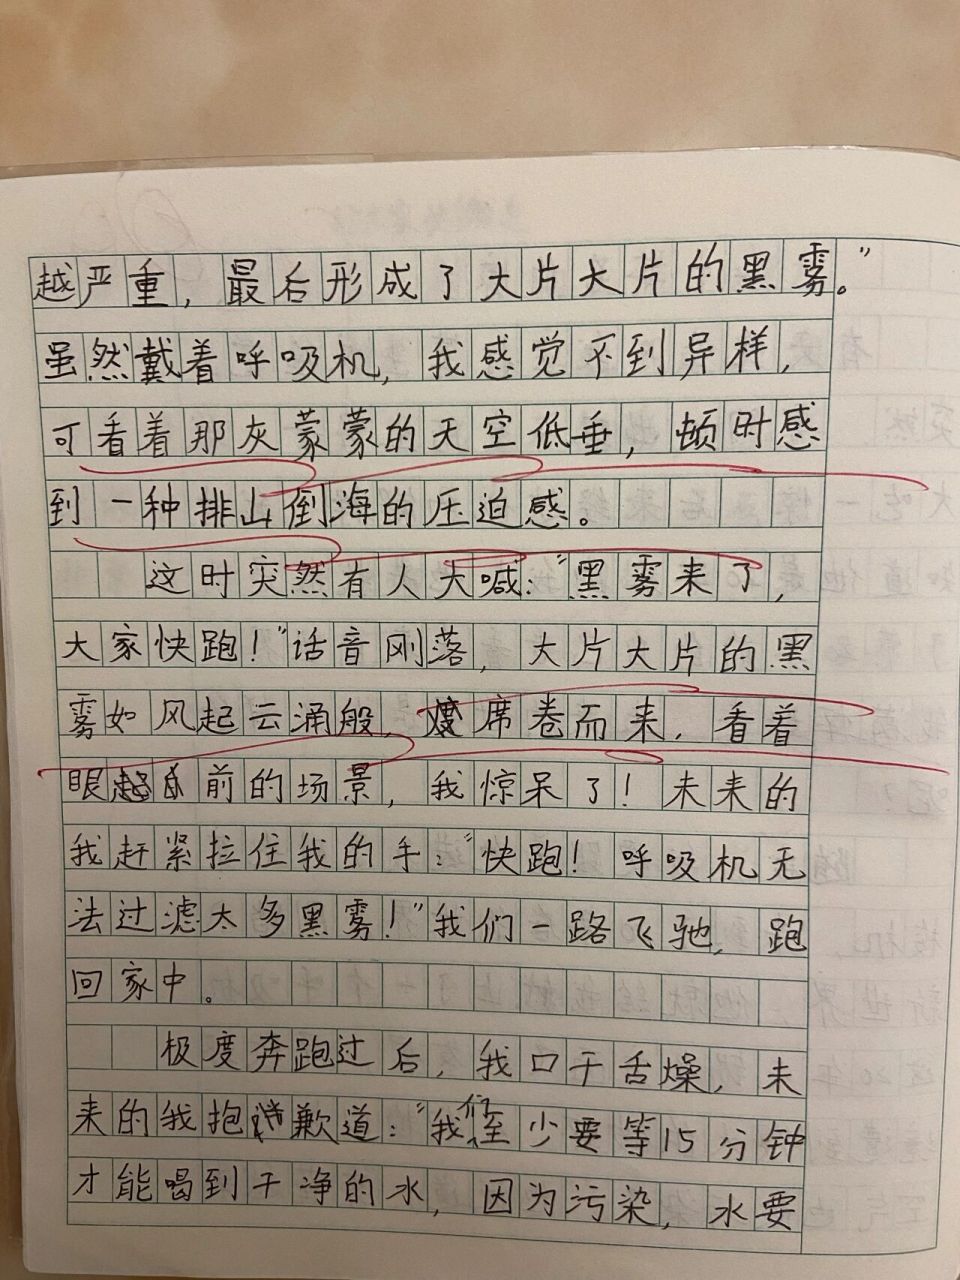 越严重，最后形成了大片大片的黑雾。”
虽然戴着呼吸机，我感觉不到异样，
可看着那灰蒙蒙的天空低垂，顿时感
到一种排山倒海的压迫感。
这时突然有人大喊：“黑雾来了，
大家快跑！”话音刚落，大片大片的黑
雾如风起云涌般，席卷而来，看着
眼前的场景，我惊呆了！未来的
我赶紧拉住我的手：“快跑！呼吸机无
法过滤太多黑雾！”我们一路飞驰，跑
回家中。
极度奔跑过后，我口干舌燥，未
来的我抱歉道：“我们至少要等15分钟
才能喝到干净的水，因为污染，水要